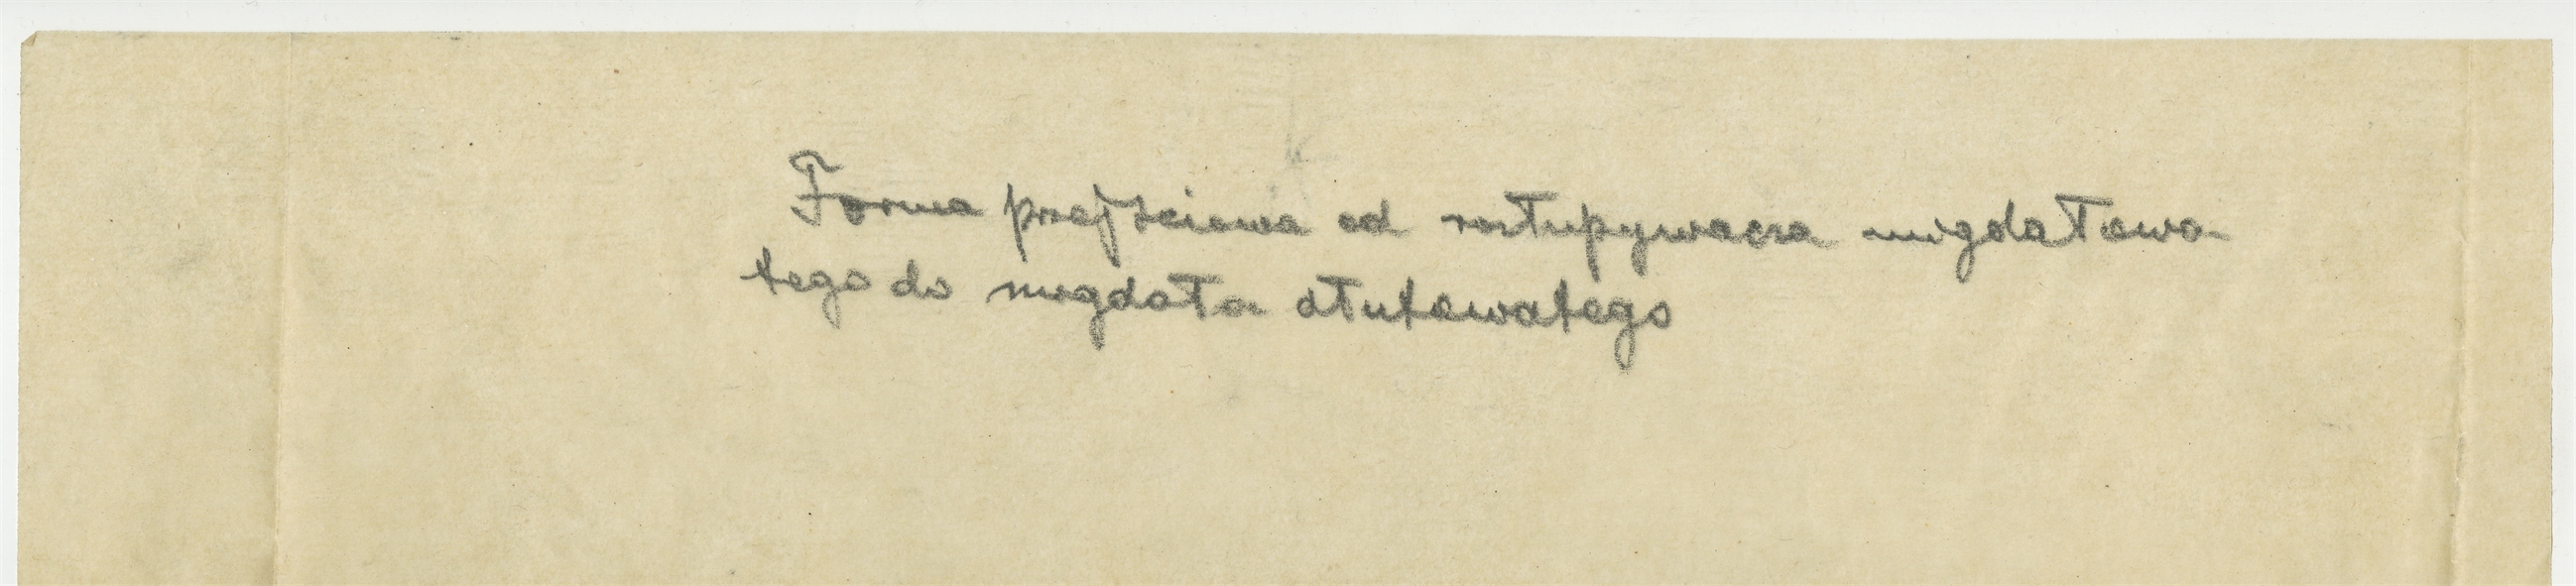 Forma przejściowa od rozłupywacza migdałowa-
tego do migdała dłutowatego